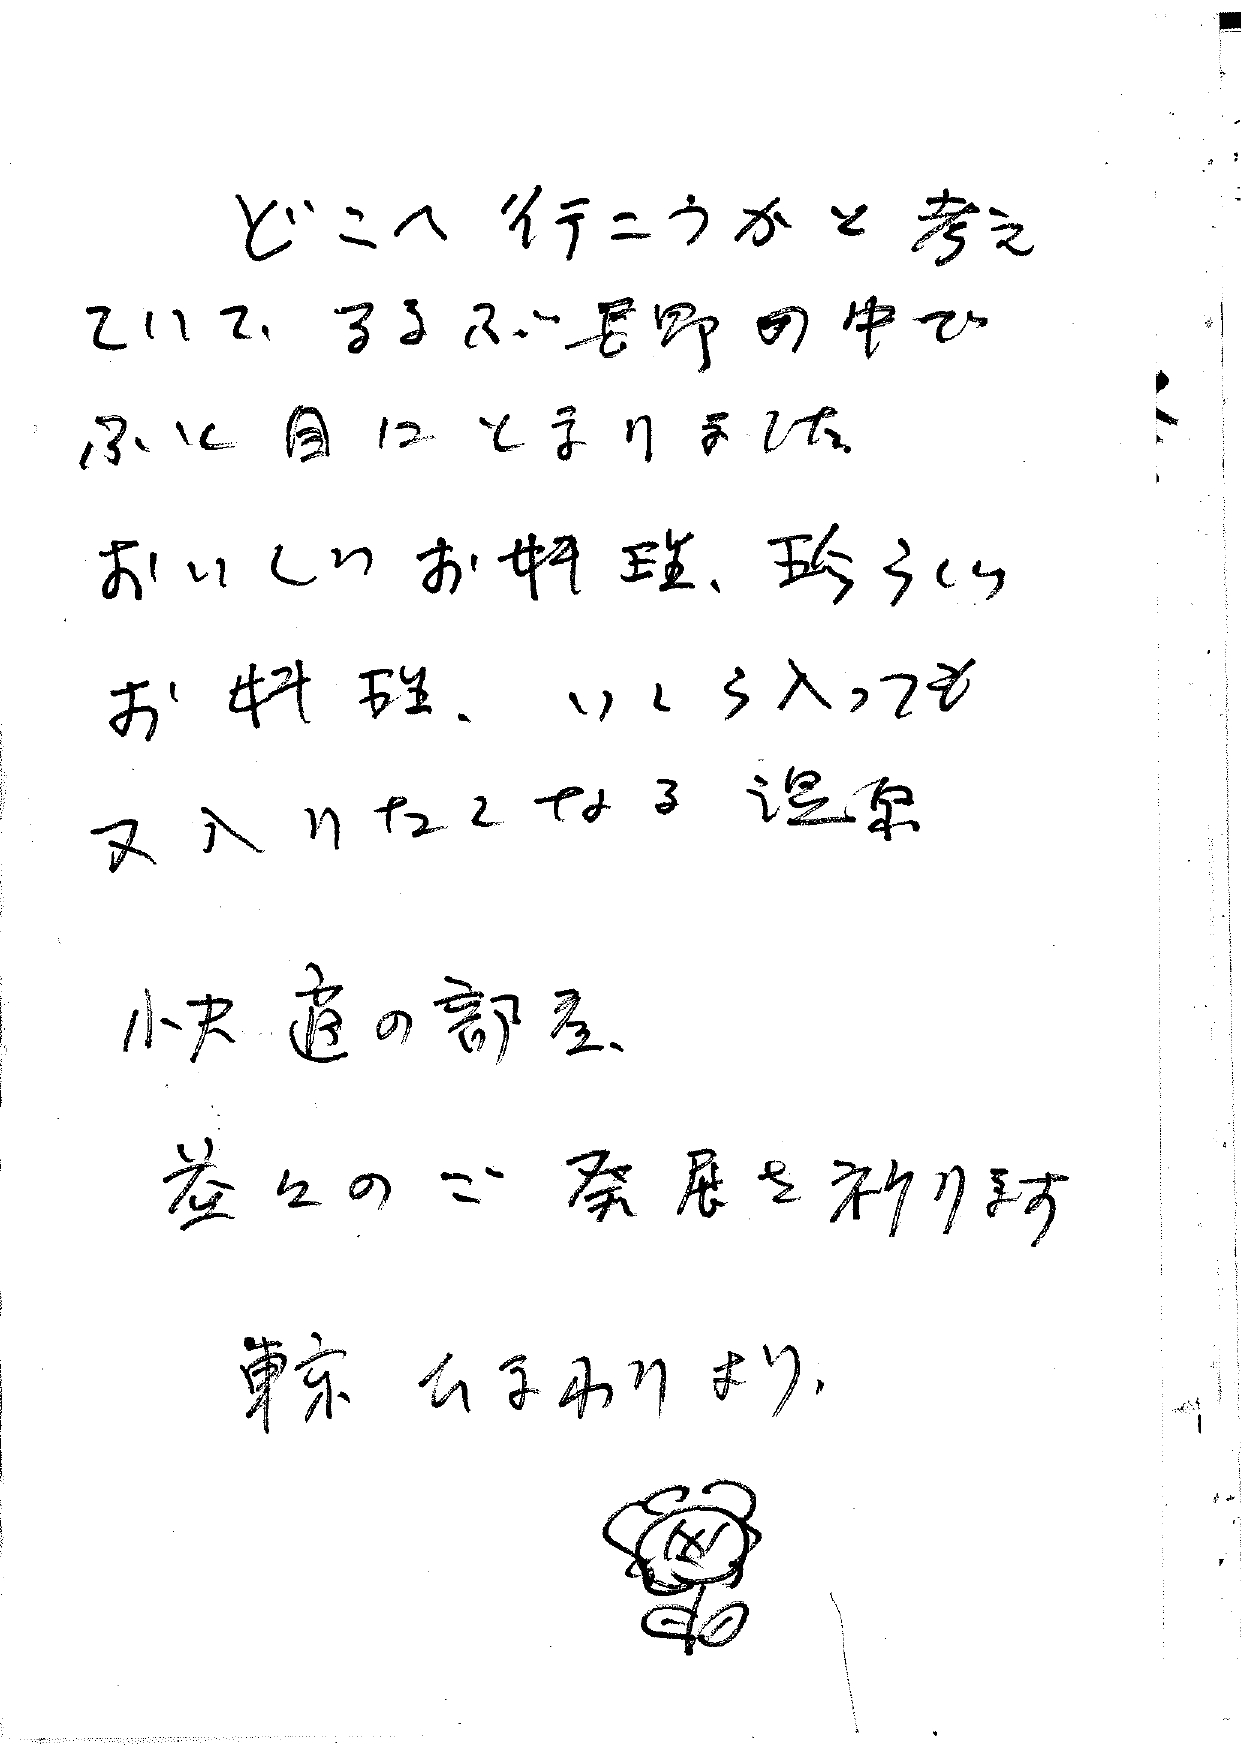 どこへ行こうかと考え
ていて、るるぶ長野の中で
ふと目にとまりました。
おいしいお料理、珍らしい
お料理、いくら入っても
又入りたくなる温泉
快適の部屋、
益々のご発展を祈ります
東京 ひまわりより、